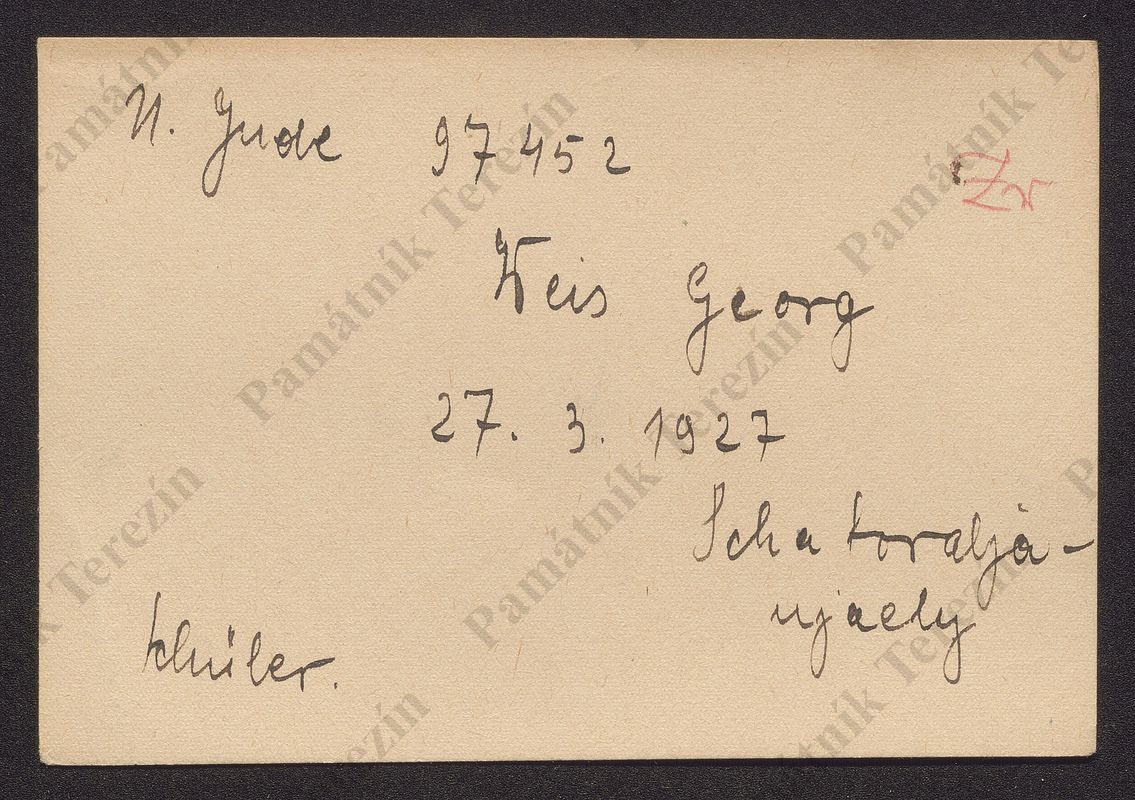 U. Jude 97452
Zr
Weis Georg
27. 3. 1927
Schatoraljá-
ujaely
schüler.
Památník Terezín